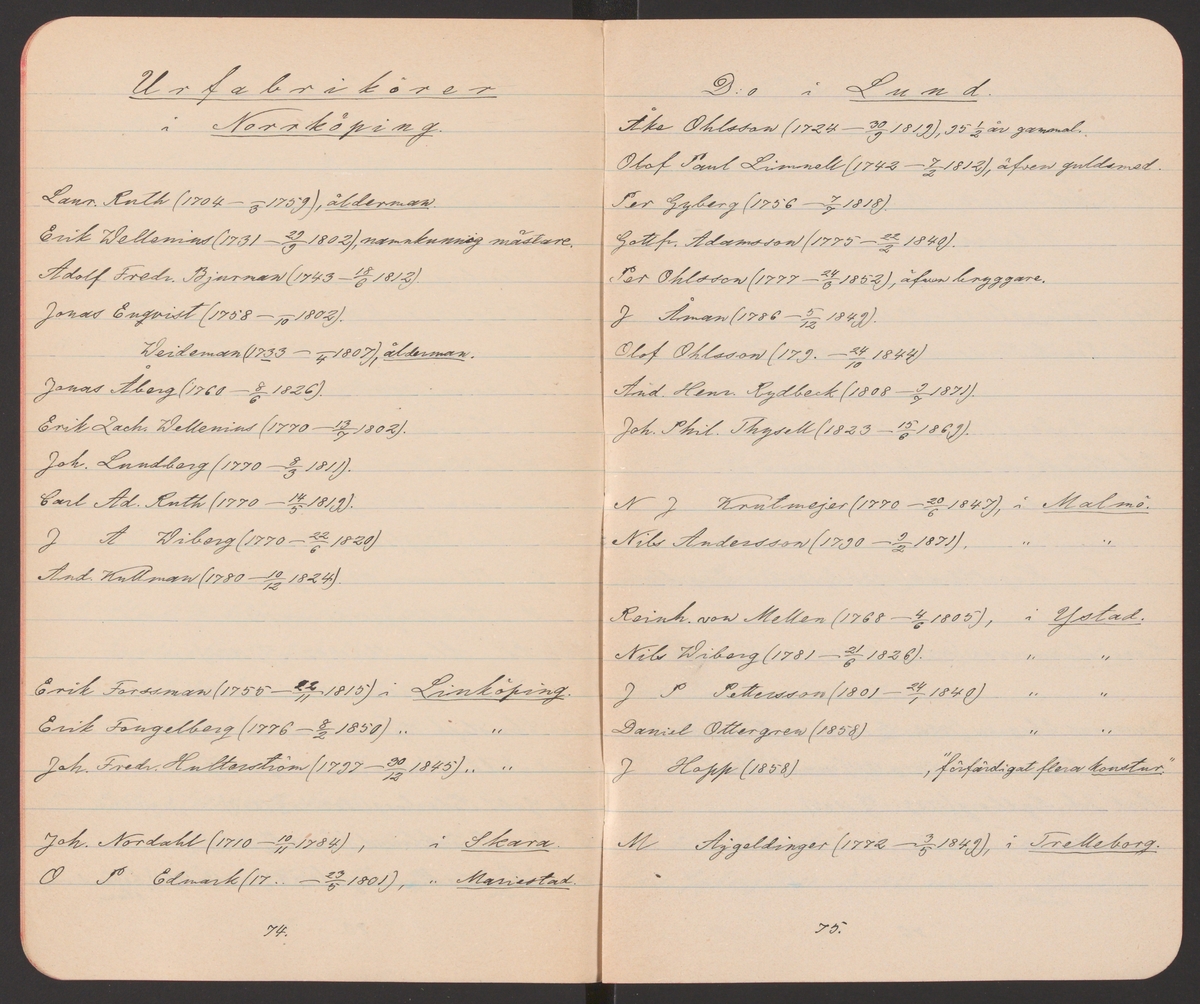 Urfabrikörer
i Norrköping.
Laur. Ruth (1704 — /8 1759), ålderman.
Erik Wellenius (1731 — 29/9 1802), namnkunnig mästare.
Adolf Fredr. Bjurman (1743 — 18/6 1812).
Jonas Enqvist (1758 — /10 1802).
Weideman (1733 — /4 1807), ålderman.
Jonas Åberg (1760 — 8/6 1826).
Erik Zach. Wellenius (1770 — 13/7 1802).
Joh. Lundberg (1770 — 8/3 1811).
Carl Ad. Ruth (1770 — 14/5 1819).
J A Wiberg (1770 — 22/6 1820)
And. Kullman (1780 — 10/12 1824).
Erik Forssman (1755 — 22/11 1815) i Linköping.
Erik Fougelberg (1776 — 8/2 1850) „ „
Joh. Fredr. Hulterström (1797 — 30/12 1845) „ „
Joh. Nordahl (1710 — 10/11 1784), i Skara.
O P Edmark (17.. — 23/5 1801), „ Mariestad.
74.
D:o i Lund.
Åke Ohlsson (1724 — 30/9 1819), 95 1/2 år gammal.
Olof Paul Limnell (1742 — 7/2 1812), äfven guldsmed.
Per Gyberg (1756 — 7/7 1818).
Gottfr. Adamsson (1775 — 22/2 1840).
Per Ohlsson (1777 — 24/8 1852), äfven bryggare.
J Åman (1786 — 5/12 1849).
Olof Ohlsson (179. — 24/10 1844)
And. Henr. Rydbeck (1808 — 9/7 1871).
Joh. Phil. Thysell (1823 — 15/6 1869).
N J Krutmejer (1770 — 20/6 1847), i Malmö.
Nils Andersson (1790 — 9/2 1871). „ „
Reinh. von Mellen (1768 — 4/6 1805), i Ystad.
Nils Wiberg (1781 — 21/6 1826). „ „
J P Pettersson (1801 — 24/1 1840) „ „
Daniel Ottergren (1858) „ „
J Hopp (1858) „förfärdigat flera konstur."
M Ajgeldinger (1772 — 3/5 1849), i Trelleborg.
75.